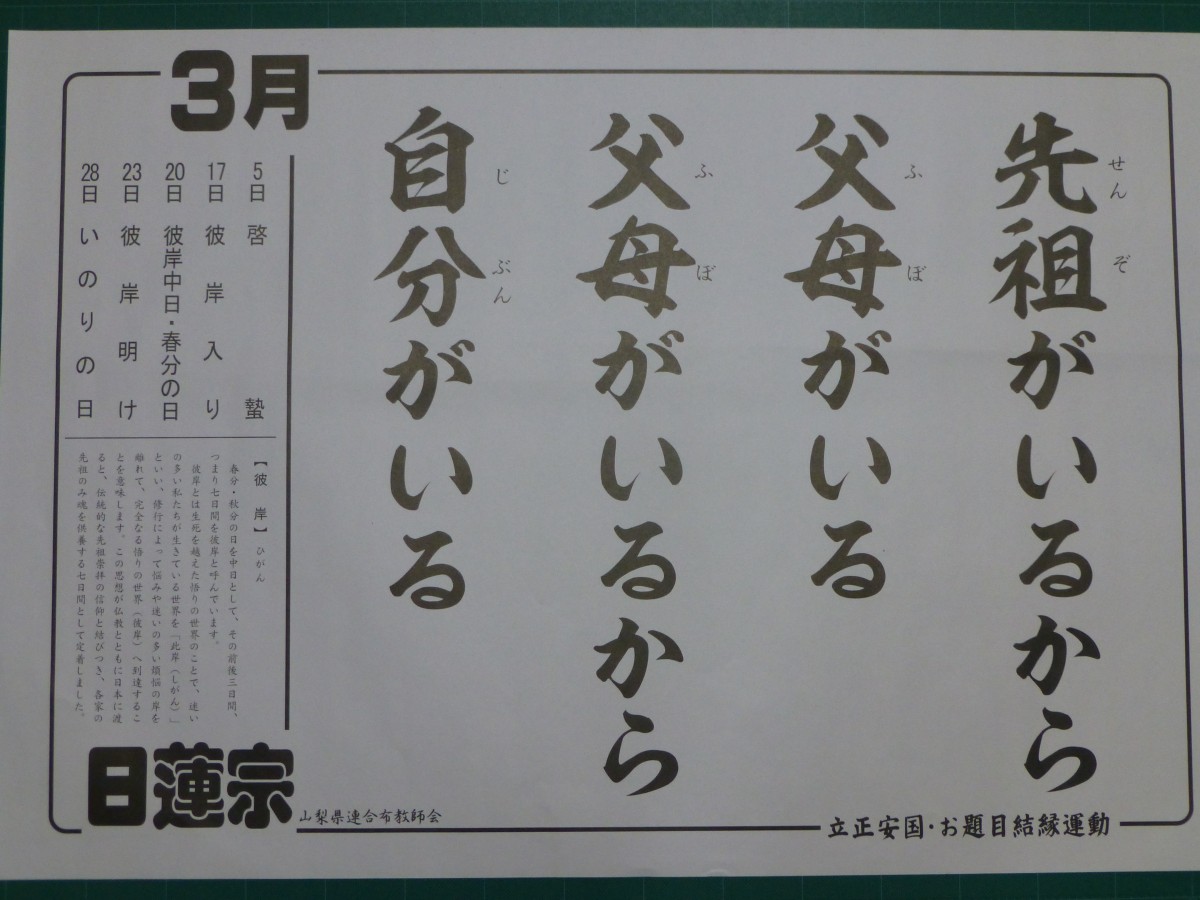 先祖がいるから
せんぞ
父母がいる
ふぼ
父母がいるから
ふぼ
自分がいる
じぶん
3月
5日 啓蟄
17日 彼岸入り
20日 彼岸中日・春分の日
23日 彼岸明け
28日 いのりの日
【彼岸】ひがん
春分・秋分の日を中日として、その前後三日間、
つまり七日間を彼岸と呼んでいます。
彼岸とは生死を越えた悟りの世界のことで、迷い
の多い私たちが生きている世界を「此岸(しがん)」
といい、修行によって悩みや迷いの多い煩悩の岸を
離れて、完全なる悟りの世界(彼岸)へ到達するこ
とを意味します。この思想が仏教とともに日本に渡
ると、伝統的な先祖崇拝の信仰と結びつき、各家の
先祖のみ魂を供養する七日間として定着しました。
日蓮宗
山梨県連合布教師会
立正安国・お題目結縁運動